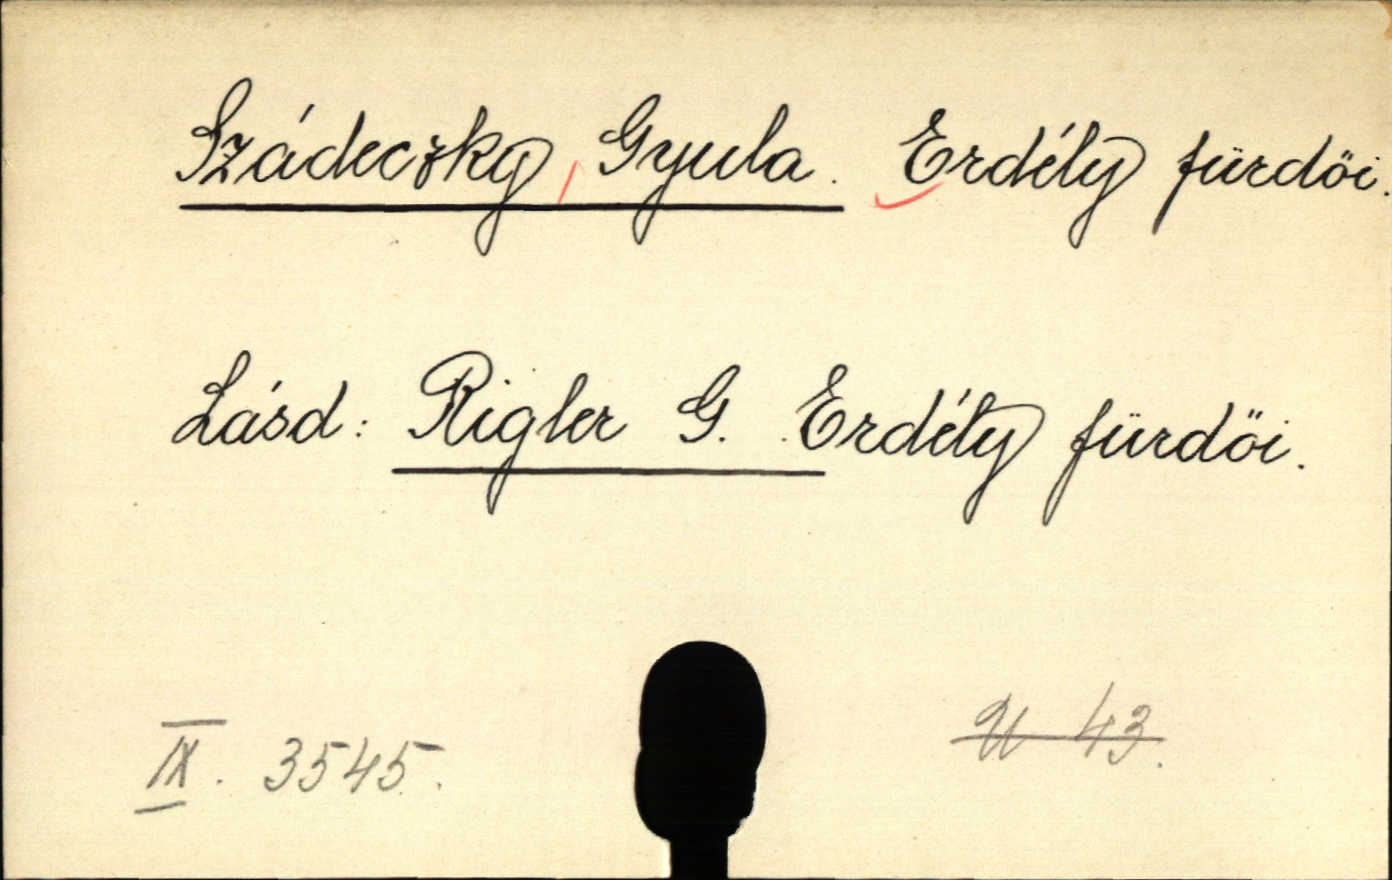 Szádeczky, Gyula. Erdély fürdői.
Lásd: Rigler G. Erdély fürdői.
IX. 3545.
U 43.